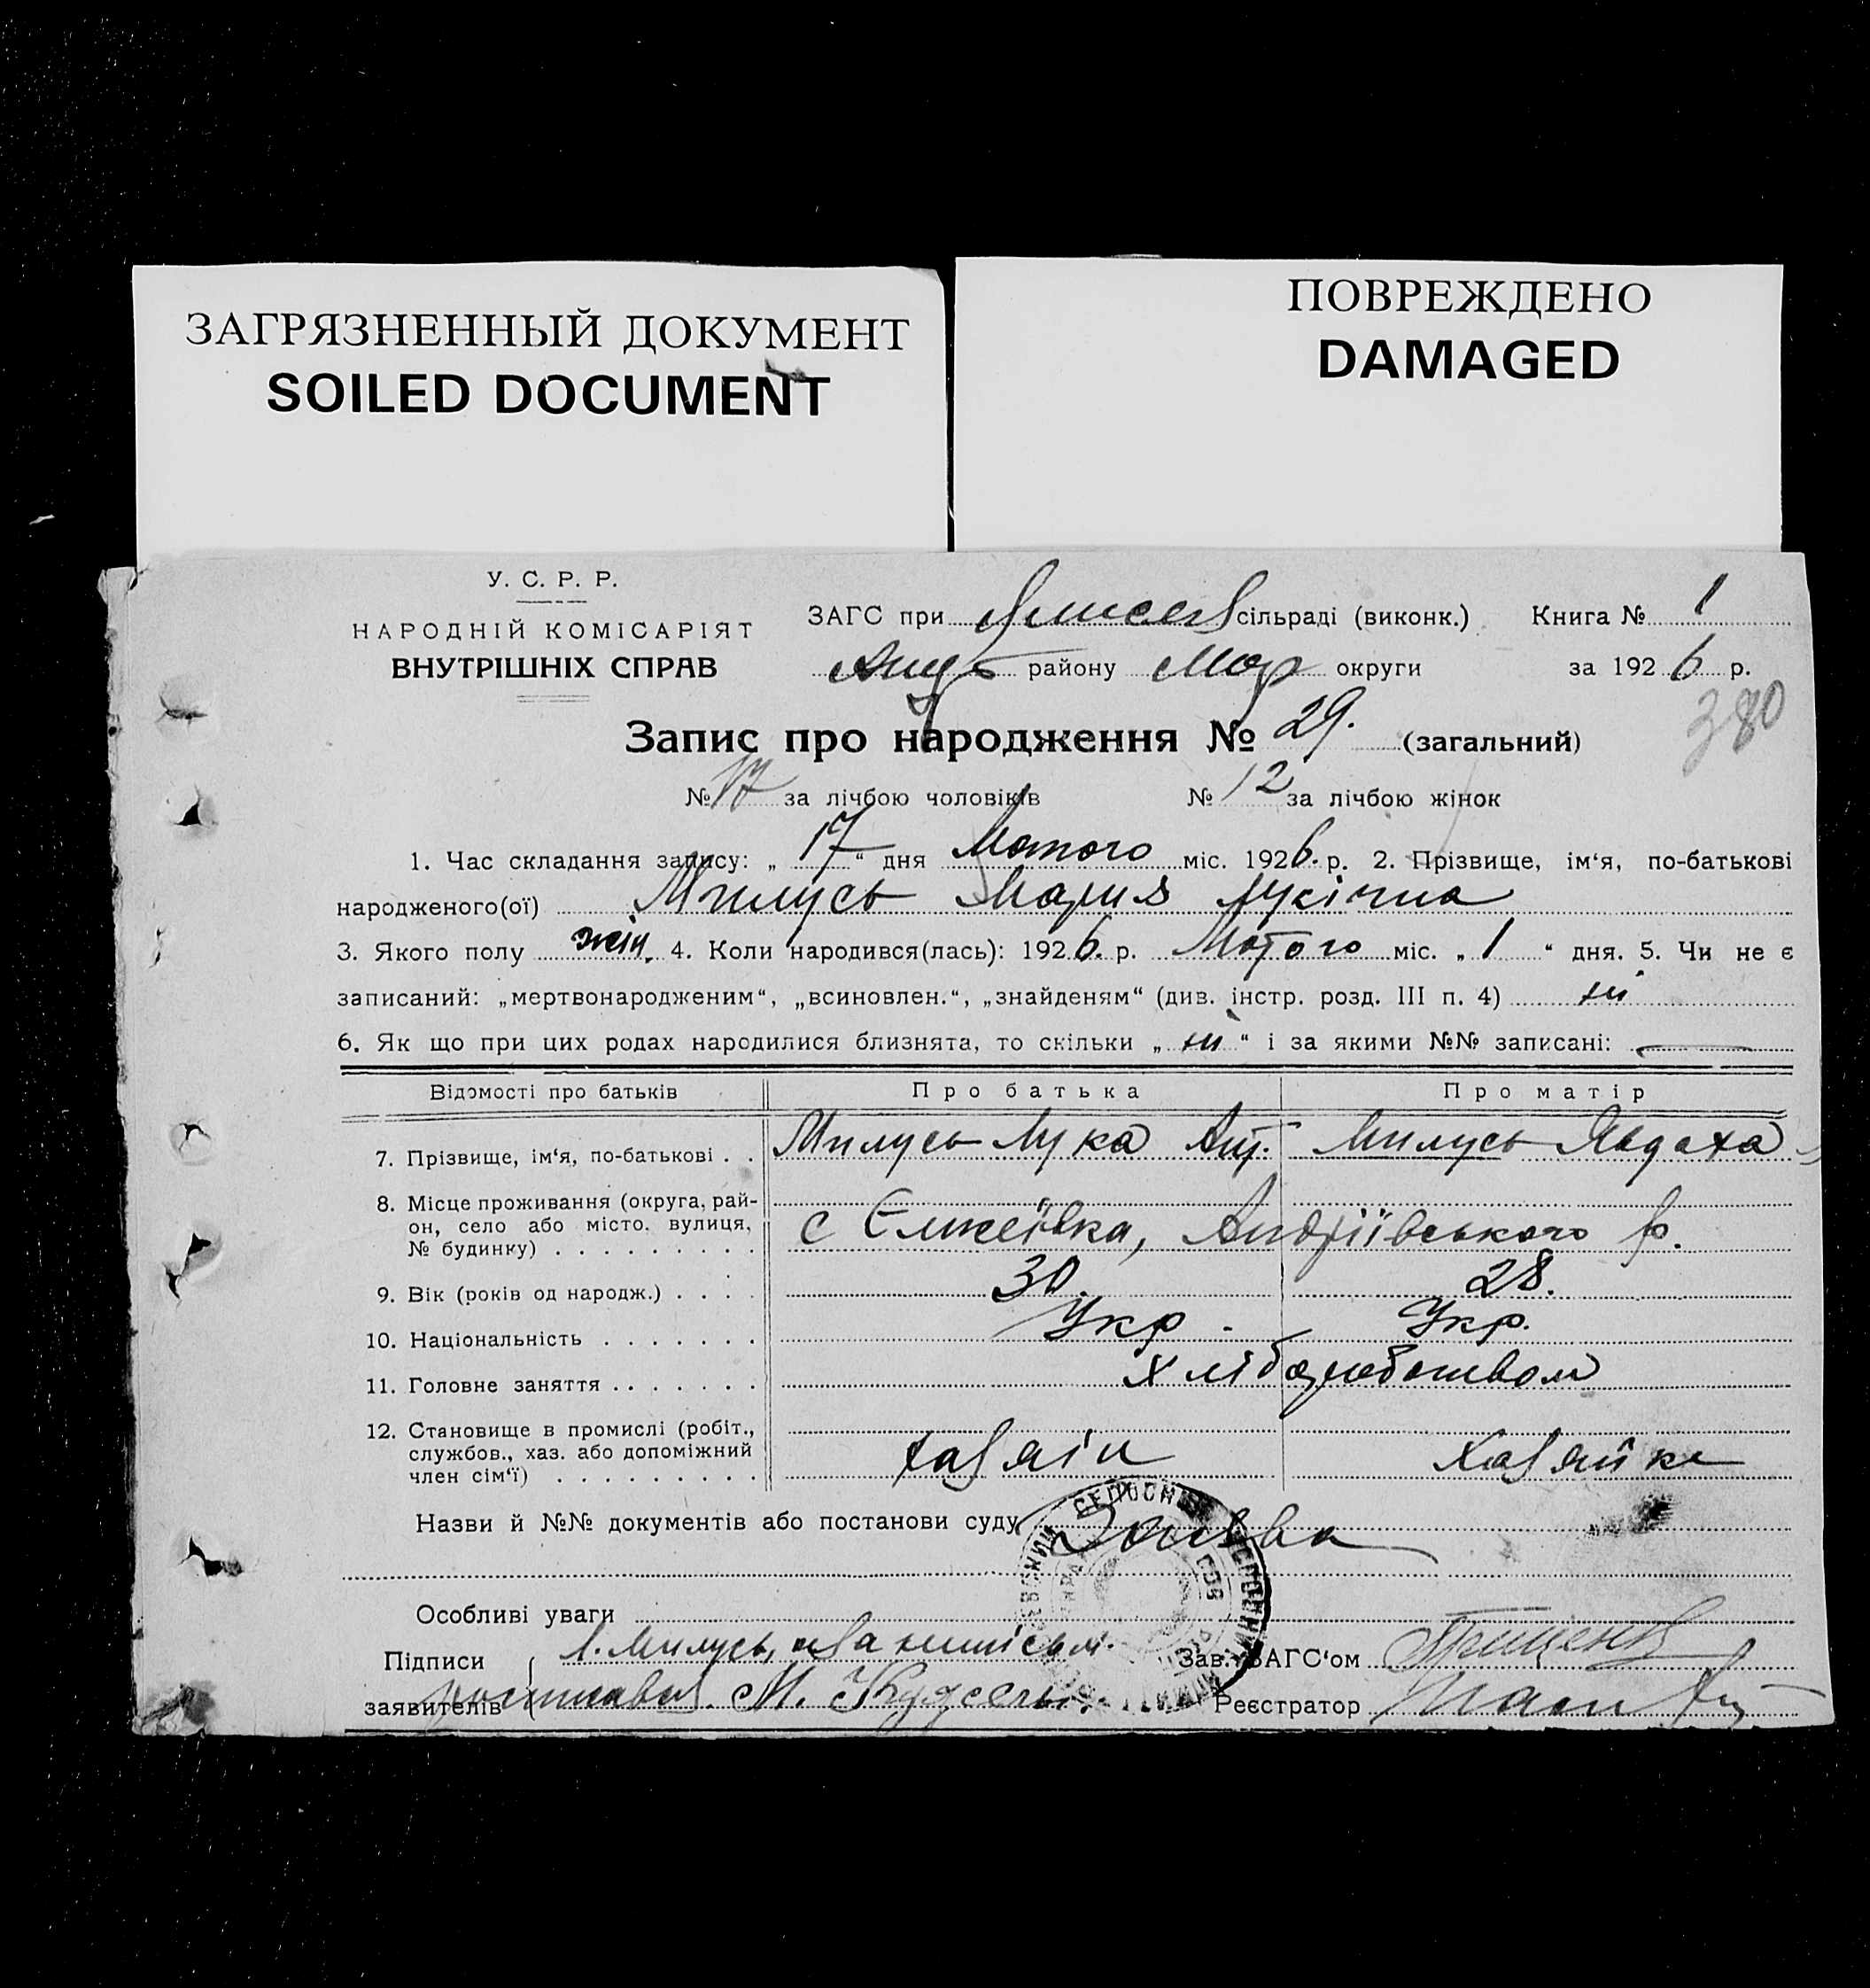 ЗАГРЯЗНЕННЫЙ ДОКУМЕНТ
SOILED DOCUMENT
ПОВРЕЖДЕНО
DAMAGED
У. С. Р. Р.
НАРОДНІЙ КОМІСАРІЯТ
ВНУТРІШНІХ СПРАВ
ЗАГС при сільраді (виконк.) Книга № 1
району Мар округи за 1926 р.
380
Запис про народження № 29. (загальний)
№ 17 за лічбою чоловіків № 12 за лічбою жінок
1. Час складання запису: „ 17 “ дня Лютого міс. 1926. р. 2. Прізвище, ім‘я, по-батькові
народженого(ої) Милусь Мария Лукічна
3. Якого полу жін. 4. Коли народився(лась): 1926. р. Лютого міс. „ 1 “ дня. 5. Чи не є
записаний: „мертвонародженим“, „всиновлен.“, „знайденям“ (див. інстр. розд. III п. 4) ні
6. Як що при цих родах народилися близнята, то скільки „ ні “ і за якими №№ записані: —
Відомості про батьків Про батька Про матір
7. Прізвище, ім‘я, по-батькові . . Милусь Лука Милусь Явдоха
8. Місце проживання (округа, рай-
он, село або місто. вулиця,
№ будинку) . . . . . . . . . с Єлисеївка, Андріївського р.
9. Вік (років од народж.) . . . . 30. 28.
10. Національність . . . . . . . Укр. Укр.
11. Головне заняття . . . . . . . Хліборобством
12. Становище в промислі (робіт.,
службов., хаз. або допоміжний
член сім‘ї) . . . . . . . . . хазяін хазяйка
Назви й №№ документів або постанови суду Заява
Особливі уваги
Підписи Л. Милусь,
заявителів М.
Зав. ЗАГС‘ом
Реєстратор